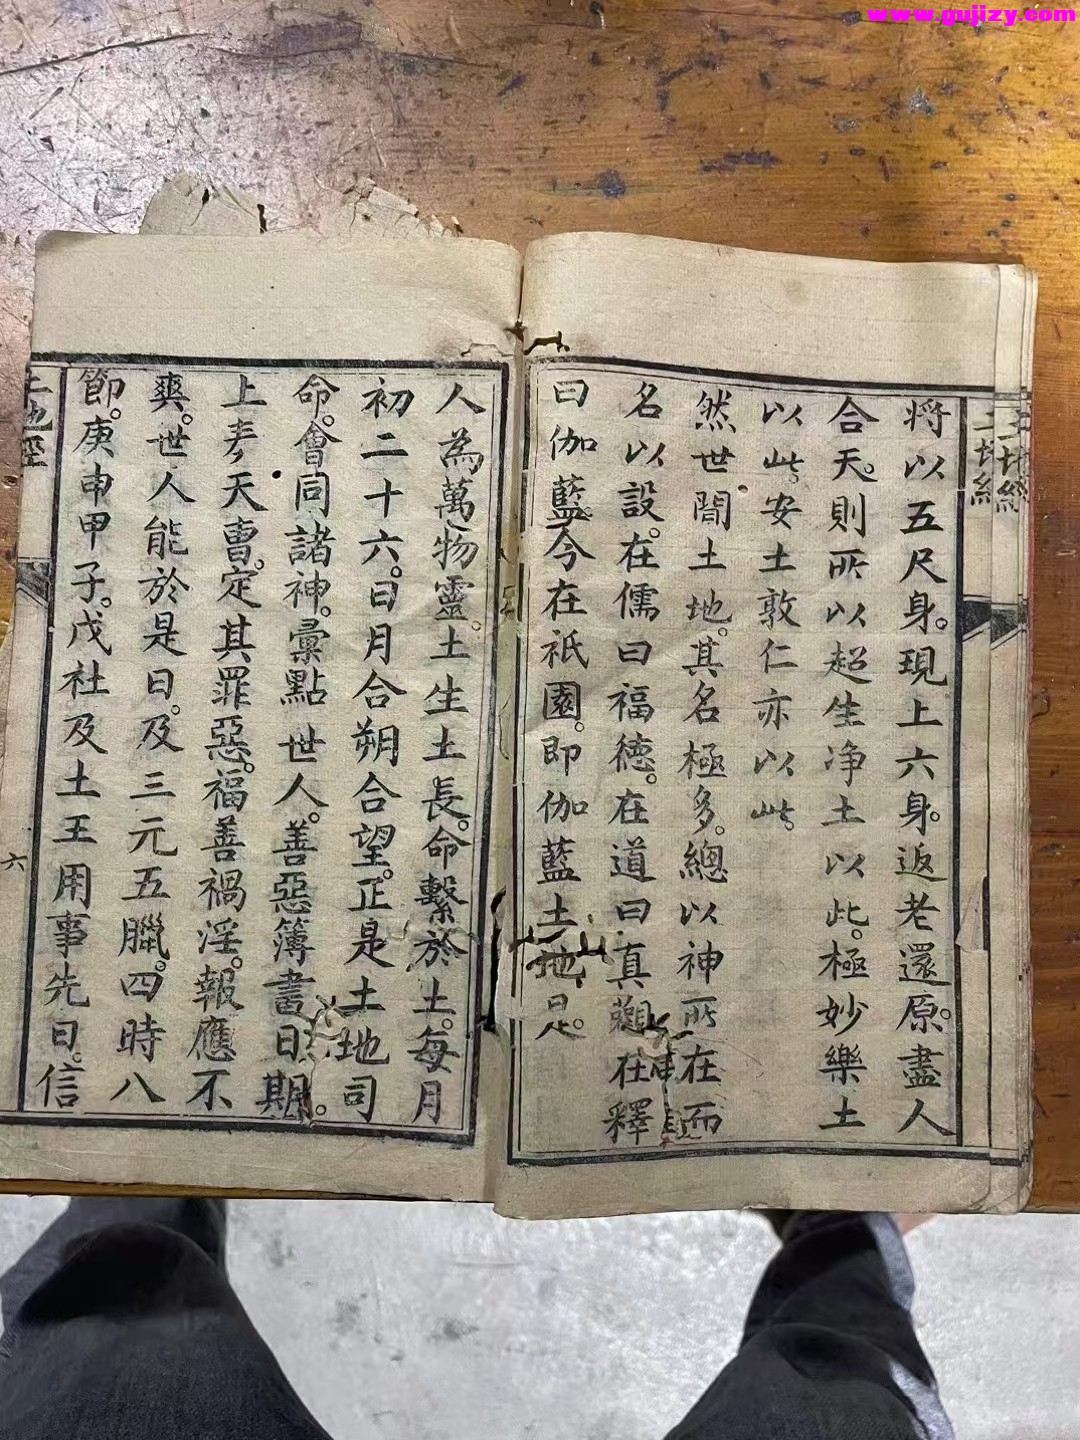 www.gujizy.com
土地經
將以五尺身。現上六身。返老還原。盡人
合天。則所以超生净土以此。極妙樂土
以此。安土敦仁亦以此。
然世間土地。其名極多。總以神所在而
名以設。在儒曰福德。在道曰真觀在釋
曰伽藍。今在祇園。即伽藍土地是。
人為萬物靈。土生土長。命繫於土。每月
初二十六。日月合朔合望。正是土地司
命。會同諸神。彙點世人。善惡簿書日期。
上奏天曹。定其罪惡。福善禍淫。報應不
爽。世人能於是日。及三元五臘。四時八
節。庚申甲子。戊社及土王用事先日。信
土地經
六